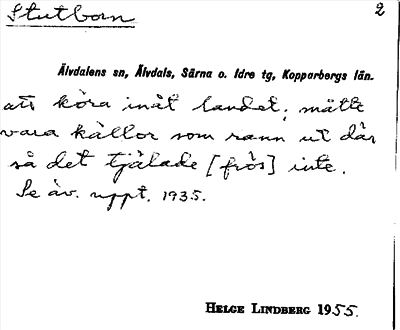 Stutborn
2
Älvdalens sn, Älvdals, Särna o. Idre tg, Kopparbergs län.
att köra inåt landet, måtte
vara källor som rann ut där
så det tjälade [frös] inte.
Se äv. uppt. 1935.
HELGE LINDBERG 1955.